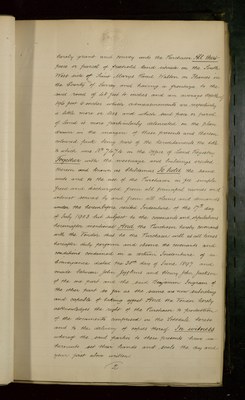 hereby grant and convey unto the Purchaser All that
piece or parcel of freehold land situate on the South
West side of Kings Road Walton on Thames in
the County of Surrey and having a frontage to the
said road of 20 feet or more and an average depth of
196 feet 6 inches which admeasurements are
a little more or less and which said piece or parcel
of land is more particularly delineated in the Plan
drawn in the margin of these presents and thereon
coloured pink being part of the hereditaments the title
to which
Together with the messuage and buildings erected
thereon and known as To hold the same
unto and to the use of the Purchaser in fee simple
freed and discharged from all principal monies and
interest secured by and from all claims and demands
under the hereinbefore recited Indenture of the day
of July 1903 but subject to the covenants and stipulations
hereinafter mentioned And the Purchaser hereby covenants
with the Vendor that he the Purchaser will at all times
hereafter duly perform and observe the covenants and
conditions contained in a certain Indenture of
Conveyance dated the day of June 1897 and
made between John and Henry John
of the one part and the said Benjamin Ingram of
the other part so far as the same are now subsisting
and capable of taking effect And the Vendor hereby
acknowledges the right of the Purchaser to production
of the documents comprised in the Schedule hereto
and to the delivery of copies thereof In witness
whereof the said parties to these presents have
hereunto set their hands and seals the day and
year first above written